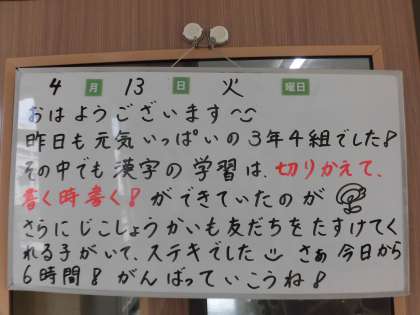 4月13日火曜日
おはようございます
昨日も元気いっぱいの3年4組でした!
その中でも漢字の学習は、切りかえて、
書く時書く!ができていたのが
さらにじこしょうかいも友だちをたすけてく
れる子がいて、ステキでした さぁ今日から
6時間!がんばっていこうね!